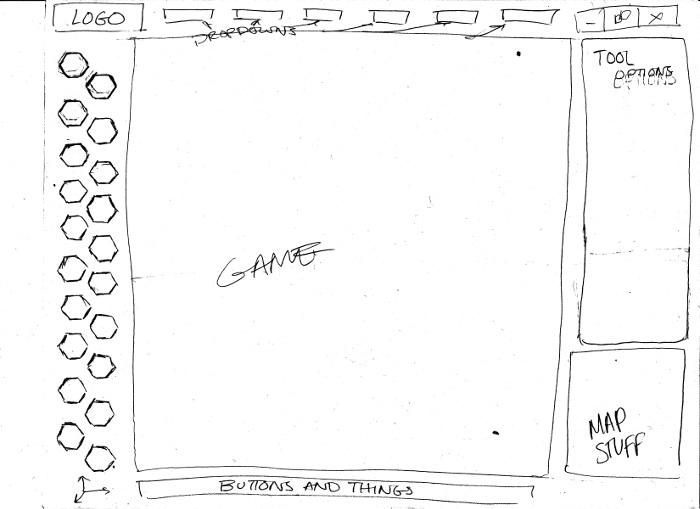 LOGO
DROPDOWNS
X
TOOL
OPTIONS
GAME
MAP
STUFF
BUTTONS AND THINGS